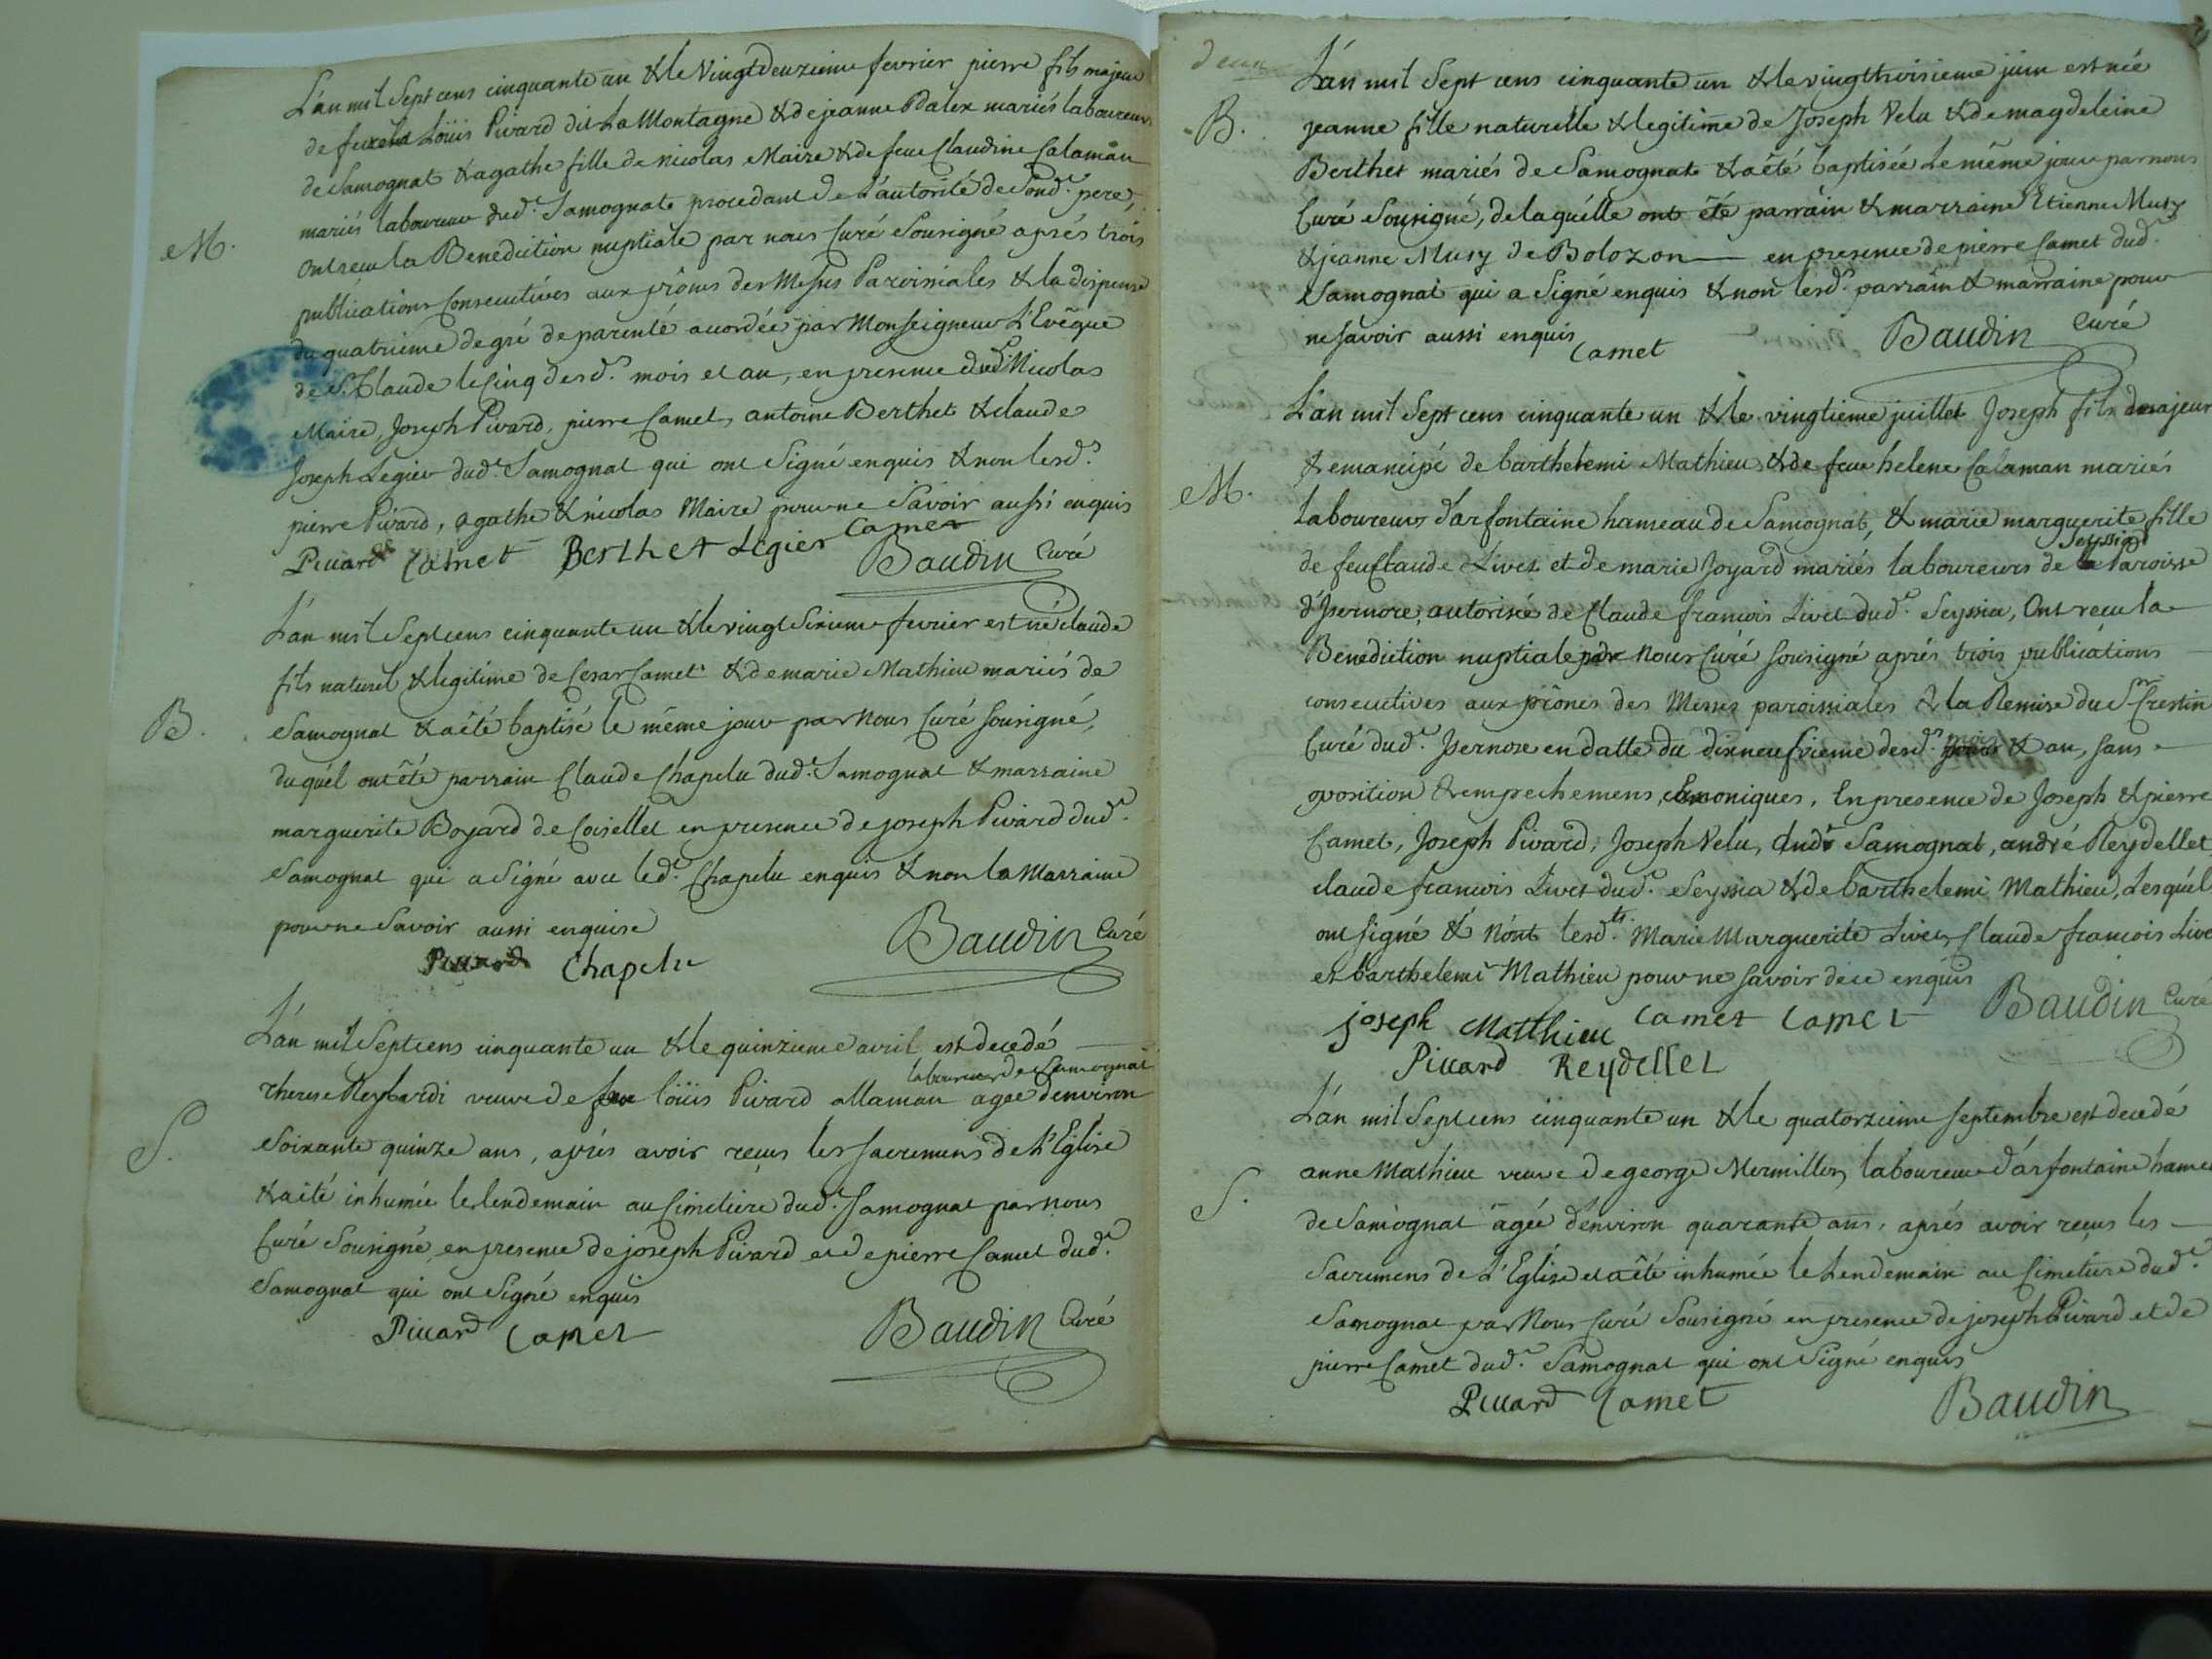 L'an mil Sept cens cinquante un & le Vingt deuzieme fevrier pierre fils majeur
de feu Loüis Pivard dit La Montagne & de jeanne Balex mariés laboureurs
de Samognat & agathe fille de nicolas Maire & de feue Claudine Calaman
mariés laboureur dud.t Samognat procedant de L'autorité de Sond.t pere,
M.
Ont recu la Benediction nuptiale par nous Curé Sousigné aprés trois
publications Consecutives aux prônes des Messes Paroissiales & la dispense
du quatrieme degré de parenté accordée par Monseigneur L'Evêque
de St. Claude le Cinq desd.ts mois et an, en presence dud.t Nicolas
Maire, Joseph Pivard, pierre Camet, antoine Berthet & claude
Joseph Legier dud.t Samognat qui ont Signé enquis & non lesd.ts
pierre Pivard, agathe & nicolas Maire pour ne Savoir aussi enquis
Pivard Camet Berthet Legier Camet Baudin Curé
L'an mil Sept cens cinquante un & le vingt Sixieme fevrier est né claude
fils naturel & legitime de Cesar Camet & de marie Mathieu mariés de
B.
Samognat & a été baptisé le même jour par Nous Curé Sousigné,
duquél ont été parrain Claude Chapelu dud.t Samognat & marraine
marguerite Boyard de Coisellet en presence de joseph Pivard dud.t
Samognat qui a Signé avec led.t Chapelu enquis & non la Marraine
pour ne Savoir aussi enquise
Pivard Chapelu Baudin Curé
L'an mil Sept cens cinquante un & le quinzieme avril est decedé
laboureur de Samognat
Therese Reybardi veuve de feu loüis Pivard allaman agée denviron
S.
Soixante quinze ans, aprés avoir reçus les Sacremens de L'Eglise
& a été inhumée le lendemain au Cimetiere dud.t Samognat par nous
Curé Sousigné, en presence de joseph Pivard et de pierre Camet dud.t
Samognat qui ont Signé enquis
Pivard Camet Baudin Curé
deux
L'an mil Sept cens cinquante un & le vingt troisieme juin est née
B.
jeanne fille naturelle & legitime de Joseph Velu & de magdeleine
Berthet mariés de Samognat & a été baptisée Le même jour par nous
Curé Sousigné, de laquélle ont été parrain & marraine Etienne Musy
& jeanne Musy de Bolozon en presence de pierre Camet dud.t
Samognat qui a Signé enquis & non lesd.ts parrain & marraine pour
ne Savoir aussi enquis
Camet Baudin Curé
L'an mil Sept cens cinquante un & le vingtieme juillet Joseph fils majeur
& emancipé de barthelemi Mathieu & de feue helene Calaman mariés
M.
Laboureurs d'arfontaine hameau de Samognat, & marie marguerite fille
Seyssia
de feu Claude Livet et de marie Joyard mariés laboureurs de Paroisse
d'Isernore, autorisée de Claude francois Livet dud.t Seyssia, Ont recu la
Benediction nuptiale par Nous Curé sousigné aprés trois publications
consecutives aux prônes des Messes paroissiales & la Remise du Sr. Crestin
Curé dud.t Isernore en datte du dixneufvieme desd.ts mois & an, sans
oposition & empechemens canoniques, En presence de Joseph & pierre
Camet, Joseph Pivard, Joseph Velu, dud.t Samognat, andré Reydellet
claude francois Livet dud.t Seyssia & de barthelemi Mathieu, Lesquéls
ont signé & Nónt lesd.ts Marie Marguerite Livet, Claude francois Live
et barthelemi Mathieu pour ne savoir de ce enquis
joseph Matthieu Camet Camet Baudin Curé
Pivard Reydellet
L'an mil Sept cens cinquante un & le quatorzieme septembre est decedé
anne Mathieu veuve de george Mermillon laboureur d'arfontaine hameau
S.
de Samognat agée d'environ quarante ans, aprés avoir reçus les
Sacremens de L'Eglise et a été inhumée le Lendemain au Cimetiere dud.t
Samognat par Nous Curé Sousigné en presence de joseph Pivard et de
pierre Camet dud.t Samognat qui ont Signé enquis
Pivard Camet Baudin